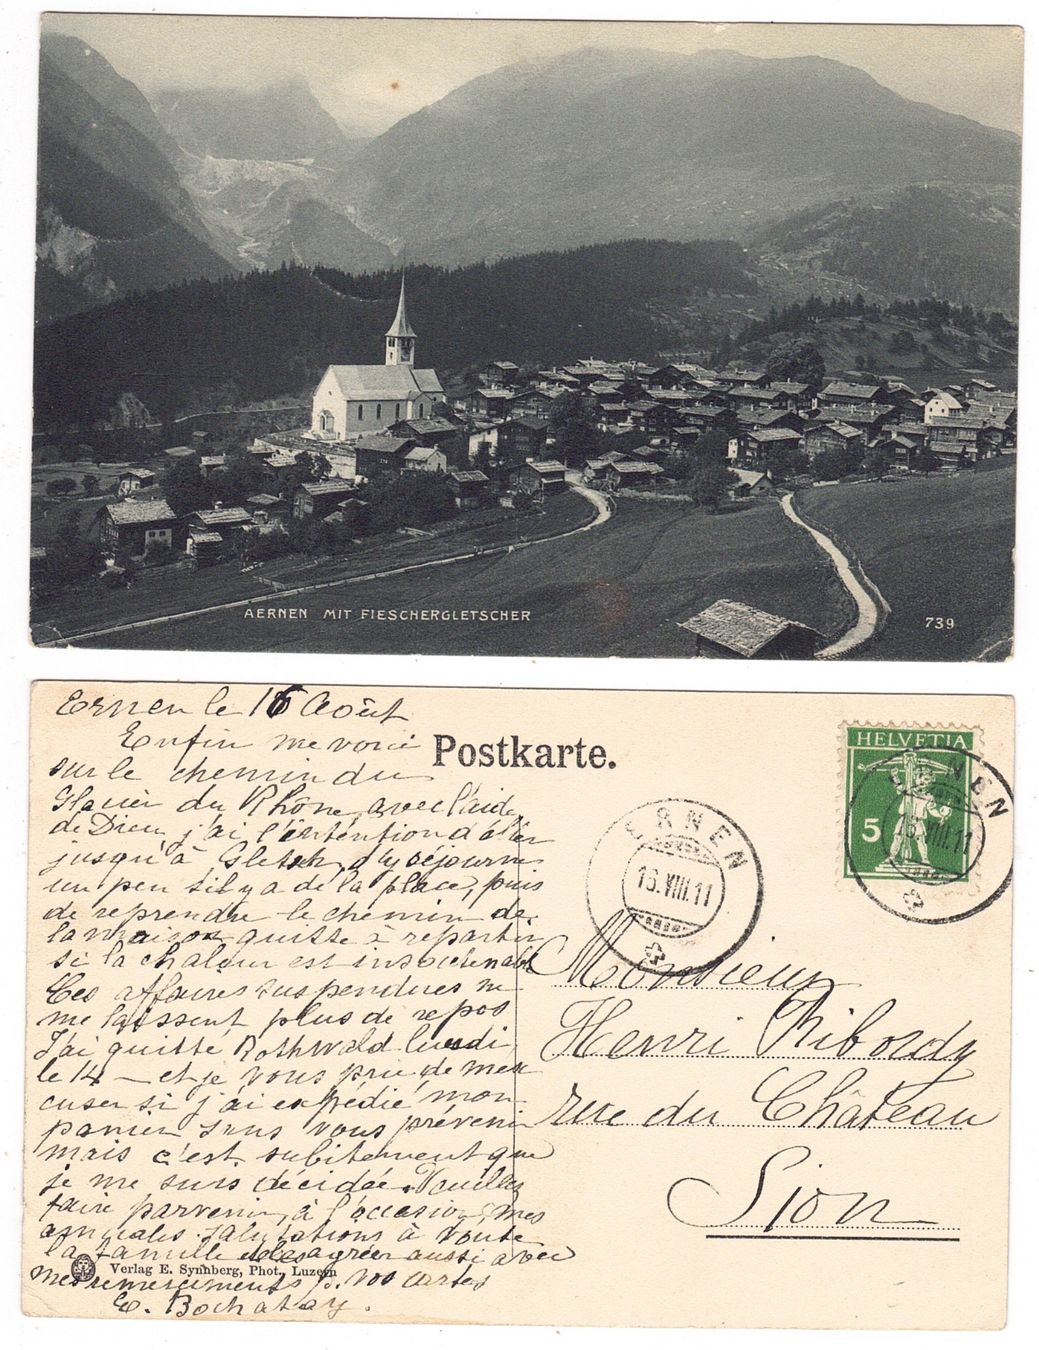 AERNEN MIT FIESCHERGLETSCHER
739
Ernen le 16 Août
Postkarte.
HELVETIA
5
ERNEN
16.VIII.11
ERNEN
16.VIII.11
Enfin me voici
sur le chemin du
Glacier du Rhône, avec l'aide
de Dieu j'ai l'intention d'aller
jusqu'à Gletsch, d'y séjourner
un peu s'il y a de la place, puis
de reprendre le chemin de
la maison quitte à repartir
si la chaleur est insoutenable
Ces affaires suspendues ne
me laissent plus de repos
J'ai quitté Rothwald lundi
le 14 — et je vous prie de m'ex
cuser si j'ai expédié mon
panier sans vous prévenir
mais c'est subitement que
je me suis décidée. Veuillez
faire parvenir, à l'occasion, mes
amicales salutations à toute
la famille agréer aussi avec
mes remerciements p. vos cartes
E. Bochatay.
Monsieur
Henri Ribordy
rue du Château
Sion
Verlag E. Synnberg, Phot., Luzern